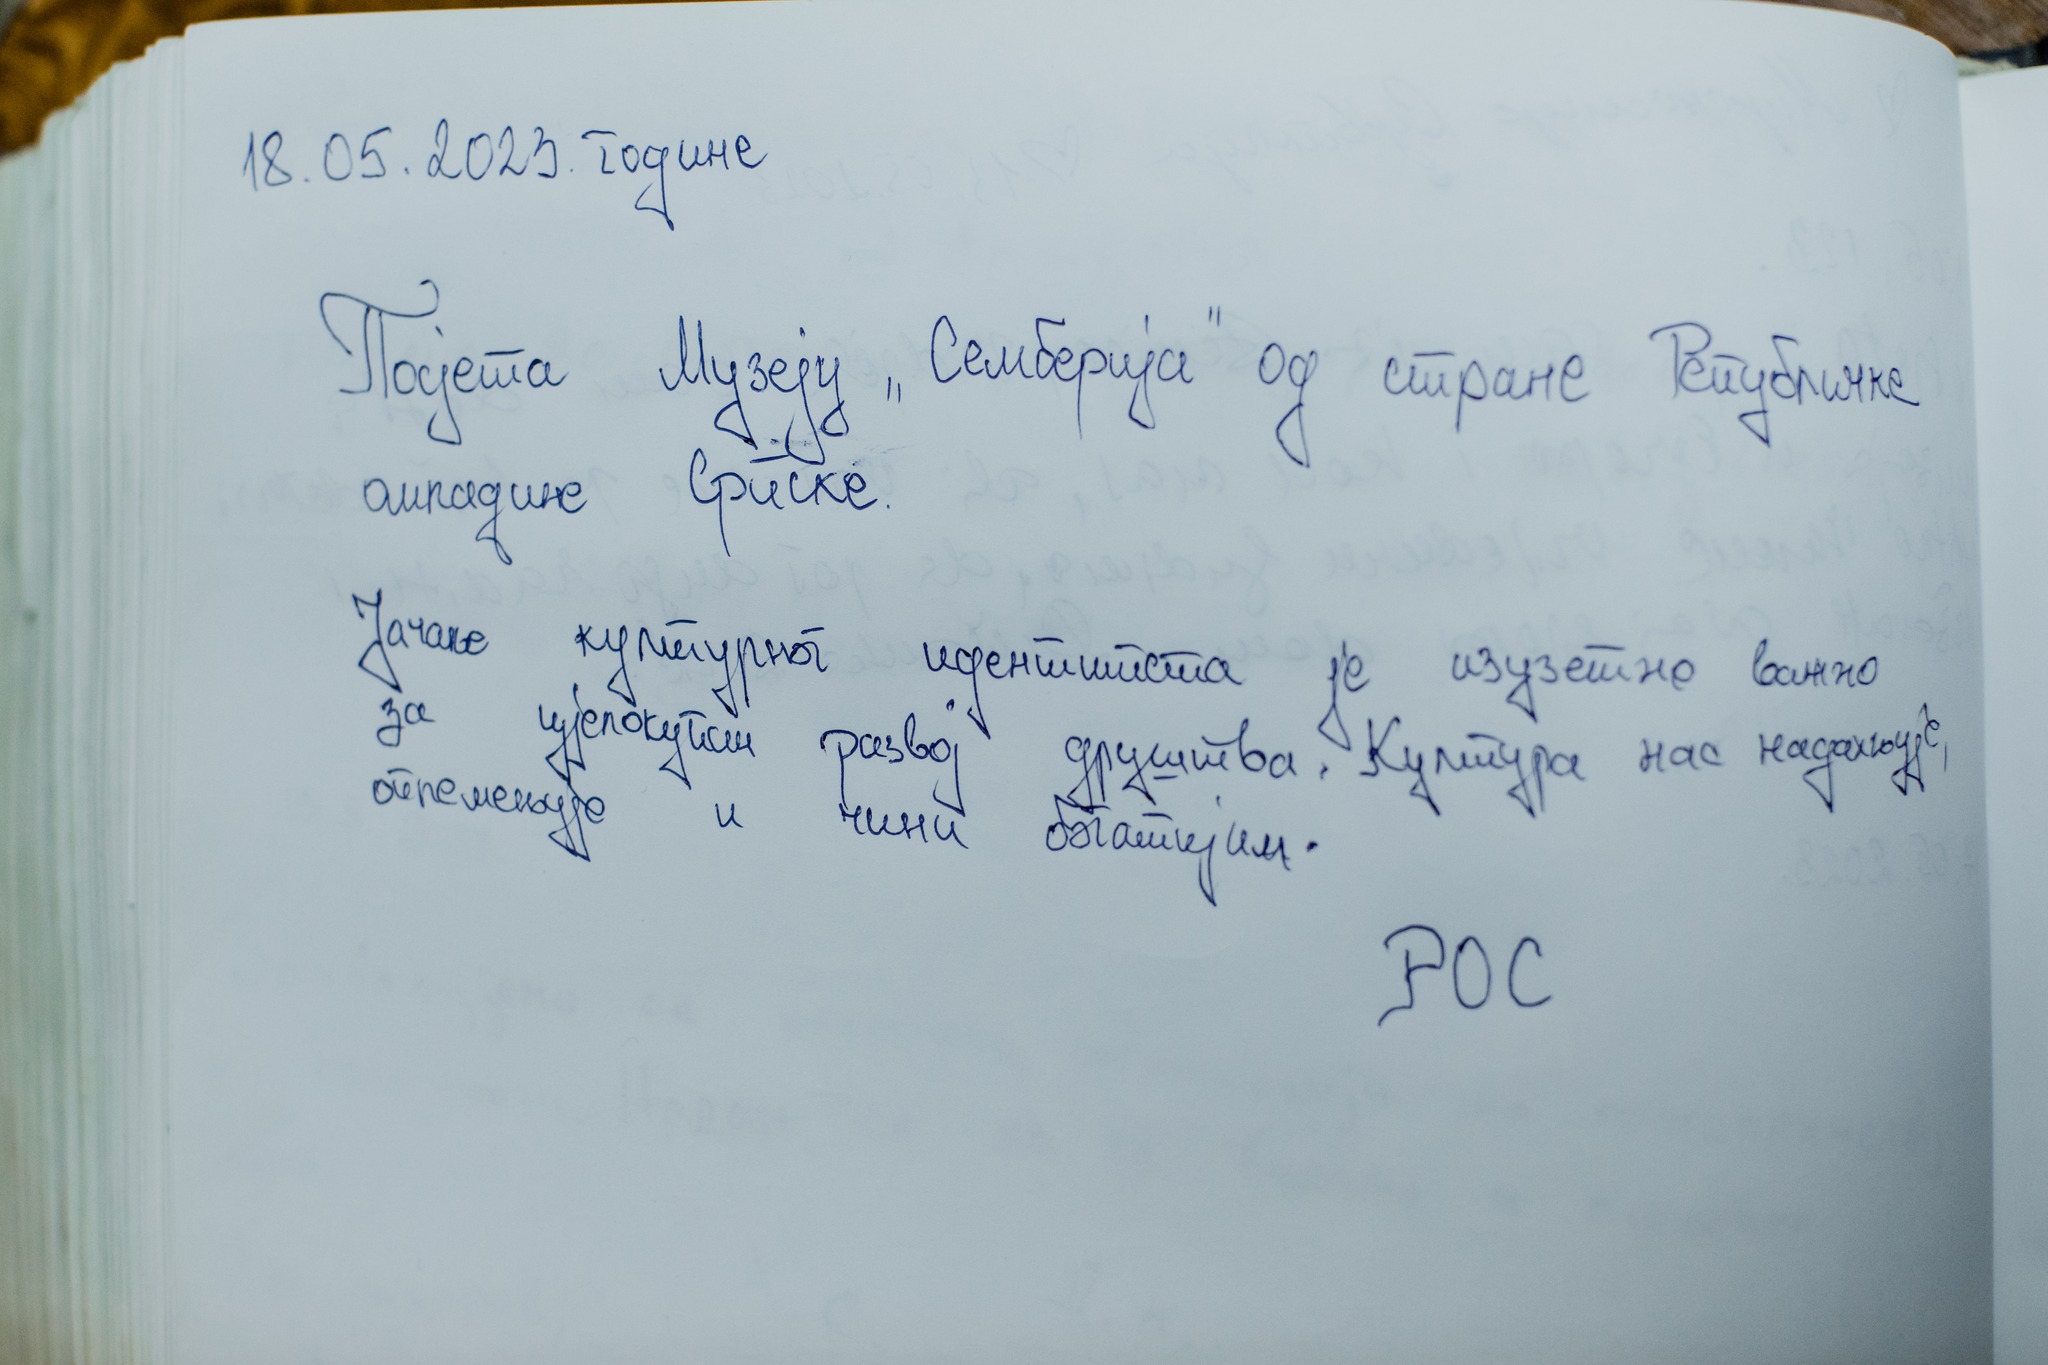 18.05.2023. године
Посјета Музеју „Семберија" од стране Републичке
омладине Српске.
Јачање културног идентитета је изузетно важно
за цјелокупан развој друштва. Култура нас надахњује,
оплемењује и чини богатијим.
РОС